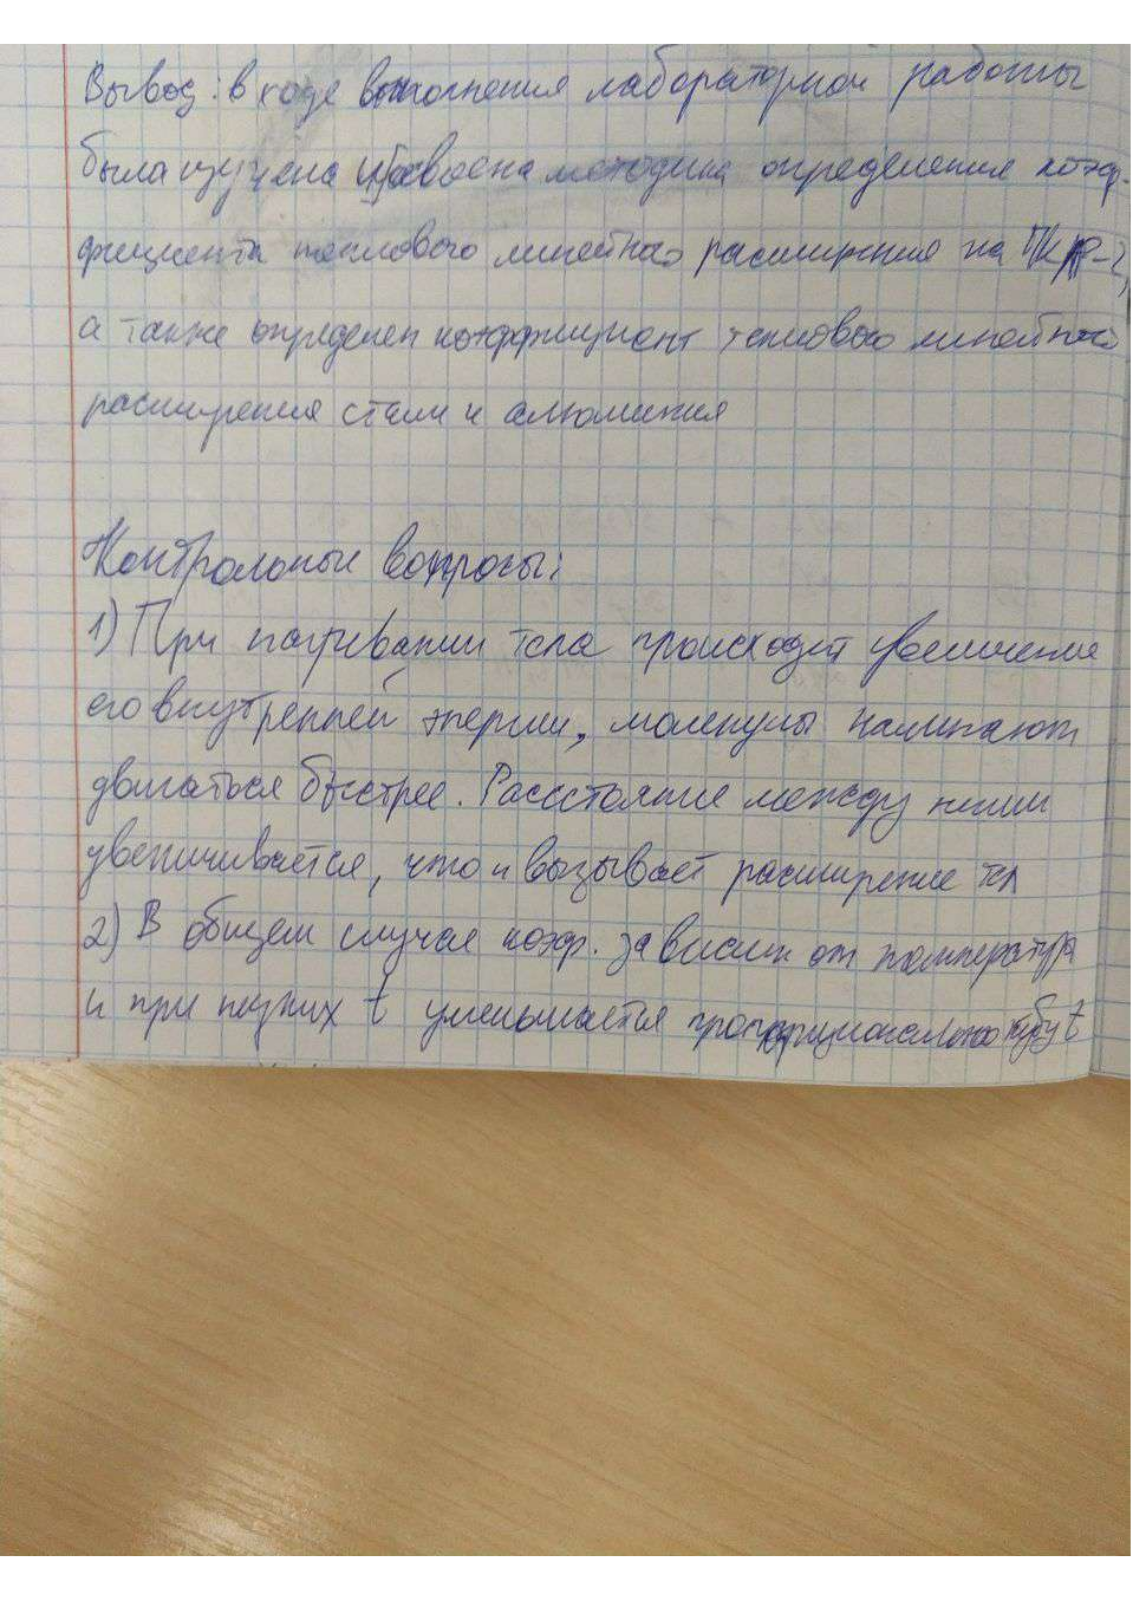 Вывод: в ходе выполнения лабораторной работы
была изучена и освоена методика определения коэф-
фициента теплового линейного расширения на
а также определен коэффициент теплового линейного
расширения стали и алюминия
Контрольные вопросы:
1) При нагревании тела происходит увеличение
его внутренней энергии, молекулы начинают
двигаться быстрее. Расстояние между ними
увеличивается, что и вызывает расширение тел
2) В общем случае коэф. зависит от температур
и при низких t уменьшается пропорционально кубу t